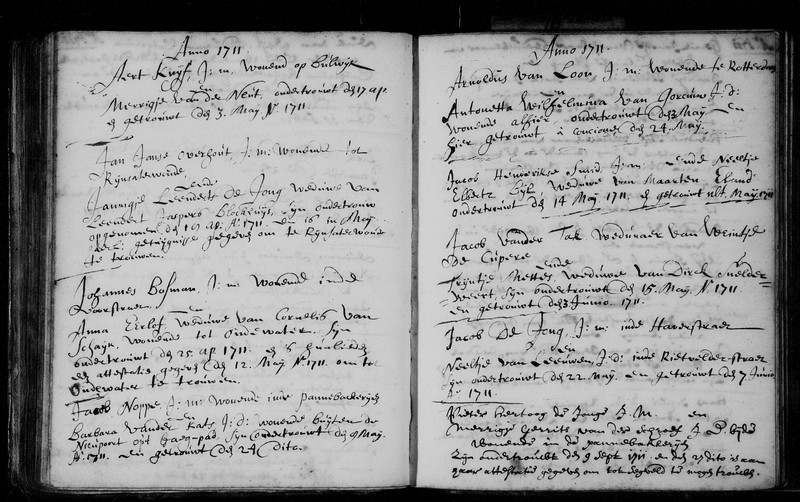 Anno 1711.
Aert Kuyf, J: m: wonend op bulwijk
en
Merrigje van der Neut, ondertrouwt den 17 ap.
en getrouwt den 3. Maÿ Aº 1711.
Jan Janse overhout, J: m: wonende tot
Rijnsaterwoude,
ende
Jannigje Leenderts de Jong weduwe van
Leendert Jaspers blockhuÿs, sijn ondertrouw
opgenomen den 19 ap: Aº 1711. den 16 in Maÿ
getuijgnisse gegeven om te Rijnsaterwoude
te trouwen.
Johannes Bosman, J: m: wonend inde
Doorstraet,
en
Anna weduwe van Cornelis van
Schayk, wonende tot oudewater. Sijn
ondertrouwt den 25 ap 1711. en is hunlieden
een attestatie gegeven den 12. Maÿ Aº 1711. om tot
Oudewater te trouwen.
Jacob Noppe J: m: wonend inde pannebackerijen
en
Barbara vander Kats J: d: wonende buÿten de
Nieupoort opt Jaegpad, Sijn ondertrouwt den 9 Maÿ
Aº 1711. en getrouwt den 24 dito.
Anno 1711.
Arnoldus van Loon, J: m: wonende te Rotterdam
en
Antonetta Wilhelmina van Gorcum J: d:
wonende alhier ondertrouwt den 3 Maÿ en
hier getrouwt à concione den 24. Maÿ.
Jacob Hendrikse J: m: ende Neeltje
Elberts Bijl, weduwe van Maarten Eland
ondertrouwt den 14 Maÿ 1711. en getrouwt ult. Maÿ 1711
Jacob vander Tak weduwaer van Weintje
De Cupere
ende
Trÿntje Nettes weduwe van Dirck Snelder-
weert, Sijn ondertrouwt den 15. Maÿ Aº 1711
en getrouwt den 3 Junio. 1711.
Jacob De Jong, J: m: inde Haverstraet
en
Neeltje van Leeuwen J: d: inde Rietvelderstraet
sijn ondertrouwt den 22. Maÿ. en getrouwt den 7 Junio
Aº 1711.
Pieter hertoog de Jonge J. M. en
Merrigje Gerrits van der J. D. bijde
wonende in de pannebakkerijen
Zijn ondertroubt den 9 Sept 1711 en den 27 dito is aan
haar attestatie gegeven om tot te mogen troubben.